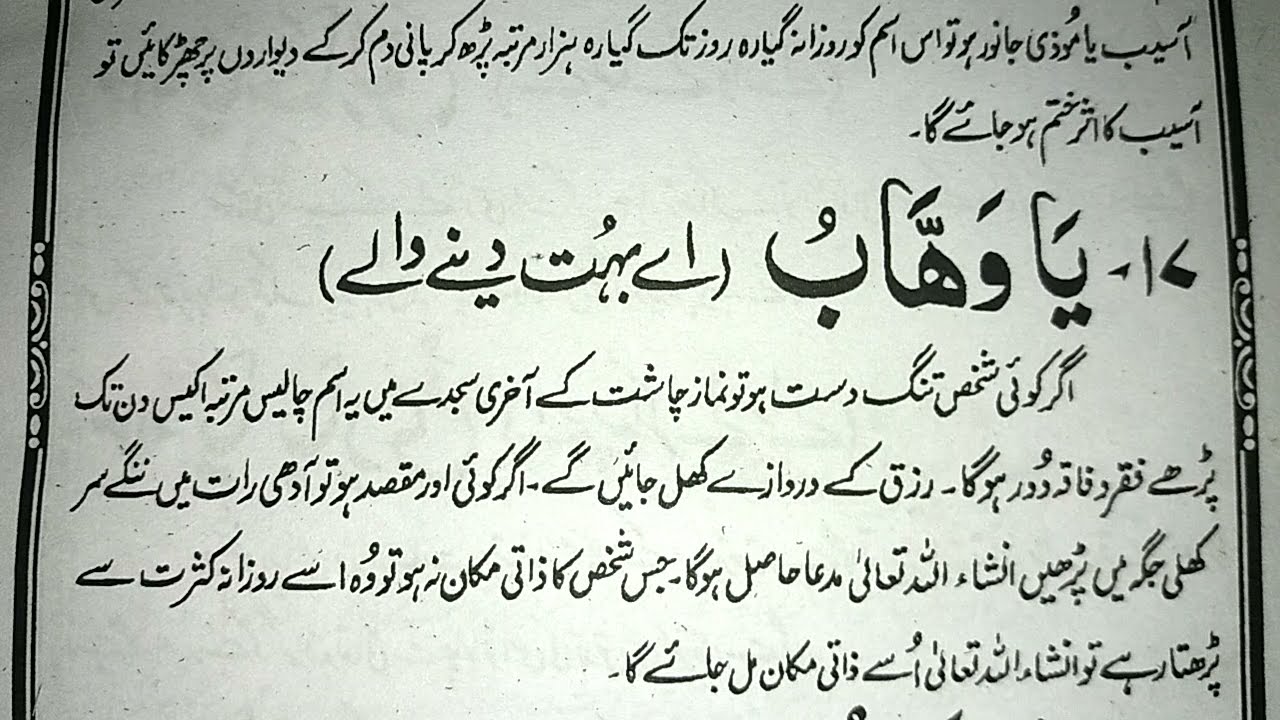 آسیب یا موذی جانور ہو تو اس اسم کو روزانہ گیارہ روز تک گیارہ ہزار مرتبہ پڑھ کر پانی دم کر کے دیواروں پر چھڑکائیں تو
آسیب کا اثر ختم ہو جائے گا۔
۱۷۔ یَا وَهَّابُ (اے بہُت دینے والے)
اگر کوئی شخص تنگ دست ہو تو نماز چاشت کے آخری سجدے میں یہ اسم چالیس مرتبہ اکیس دن تک
پڑھے فقر و فاقہ دُور ہوگا۔ رزق کے دروازے کھل جائیں گے۔ اگر کوئی اور مقصد ہو تو آدھی رات میں ننگے سر
کھلی جگہ میں پڑھیں انشاء اللہ تعالیٰ مدعا حاصل ہوگا۔ جس شخص کا ذاتی مکان نہ ہو تو وُہ اسے روزانہ کثرت سے
پڑھتا رہے تو انشاء اللہ تعالیٰ اُسے ذاتی مکان مل جائے گا۔